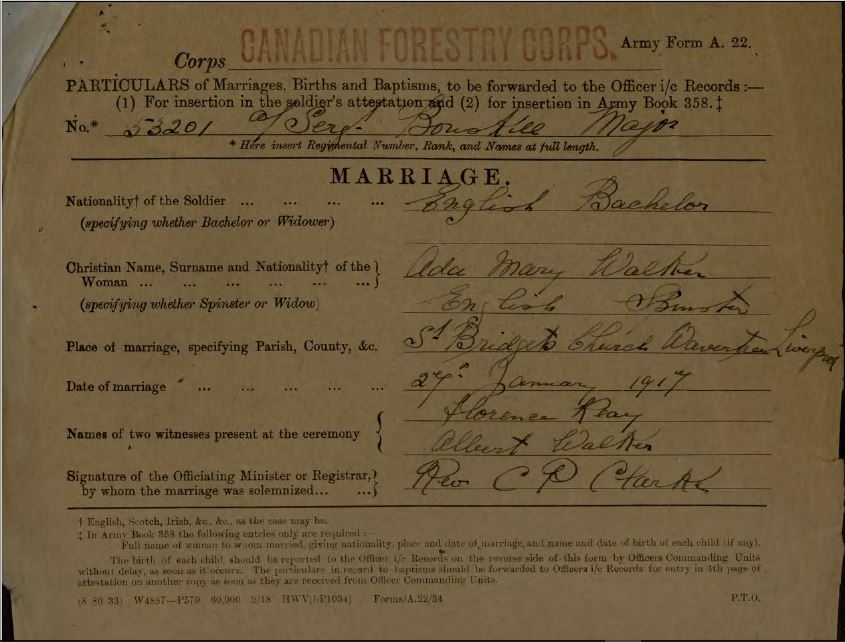 CANADIAN FORESTRY CORPS.
Corps
Army Form A. 22.
PARTICULARS of Marriages, Births and Baptisms, to be forwarded to the Officer i/c Records :—
(1) For insertion in the soldier's attestation and (2) for insertion in Army Book 358.‡
No.* 53201 a/Serg. Bouskill Major
* Here insert Regimental Number, Rank, and Names at full length.
MARRIAGE.
Nationality† of the Soldier ... ... ... ... English Bachelor
(specifying whether Bachelor or Widower)
Christian Name, Surname and Nationality† of the } Ada Mary Walker
Woman ... ... ... ... ... ... }
(specifying whether Spinster or Widow) English Spinster
Place of marriage, specifying Parish, County, &c. St Bridgets Church Wavertree Liverpool
Date of marriage ... ... ... ... 27th January 1917
Names of two witnesses present at the ceremony { Florence Keay
Albert Walker
Signature of the Officiating Minister or Registrar, } Rev C P Clarke
by whom the marriage was solemnized... ... }
† English, Scotch, Irish, &c., &c., as the case may be.
‡ In Army Book 358 the following entries only are required :—
Full name of woman to whom married, giving nationality, place and date of marriage, and name and date of birth of each child (if any).
The birth of each child should be reported to the Officer i/c Records on the reverse side of this form by Officers Commanding Units
without delay, as soon as it occurs. The particulars in regard to baptisms should be forwarded to Officers i/c Records for entry in 4th page of
attestation on another copy as soon as they are received from Officer Commanding Units.
(8 80 33) W4887—P579 60,000 2/18 HWV(P1034) Forms/A.22/34
P.T.O.